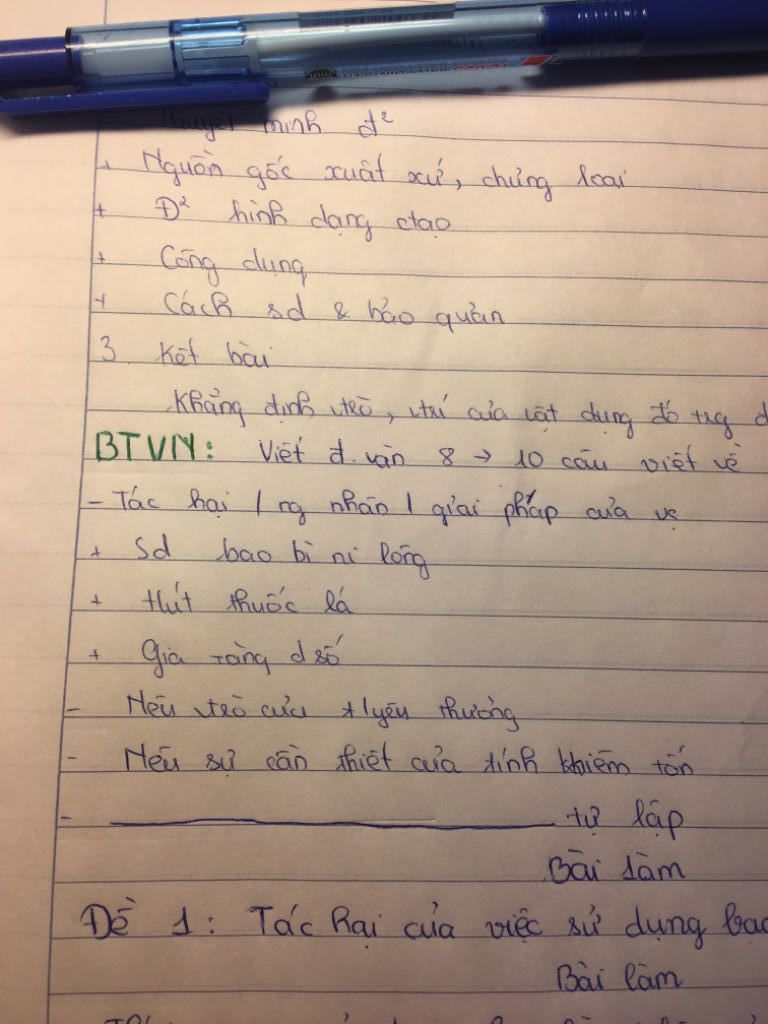 Thuyết minh đ²
+ Nguồn gốc xuất xứ, chủng loại
+ Đ² hình dạng ctạo
+ Công dụng
+ Cách sd & bảo quản
3. Kết bài
Khẳng định vtrò, vtrí của vật dụng đó trg đ
BTVN: Viết đ.văn 8 → 10 câu viết về
- Tác hại / ng nhân / giải pháp của vc
+ Sd bao bì ni lông
+ Hút thuốc lá
+ Gia tăng dsố
- Nêu vtrò của tyêu thương
- Nêu sự cần thiết của tính khiêm tốn
- tự lập
Bài làm
Đề 1: Tác hại của việc sử dụng bao
Bài làm